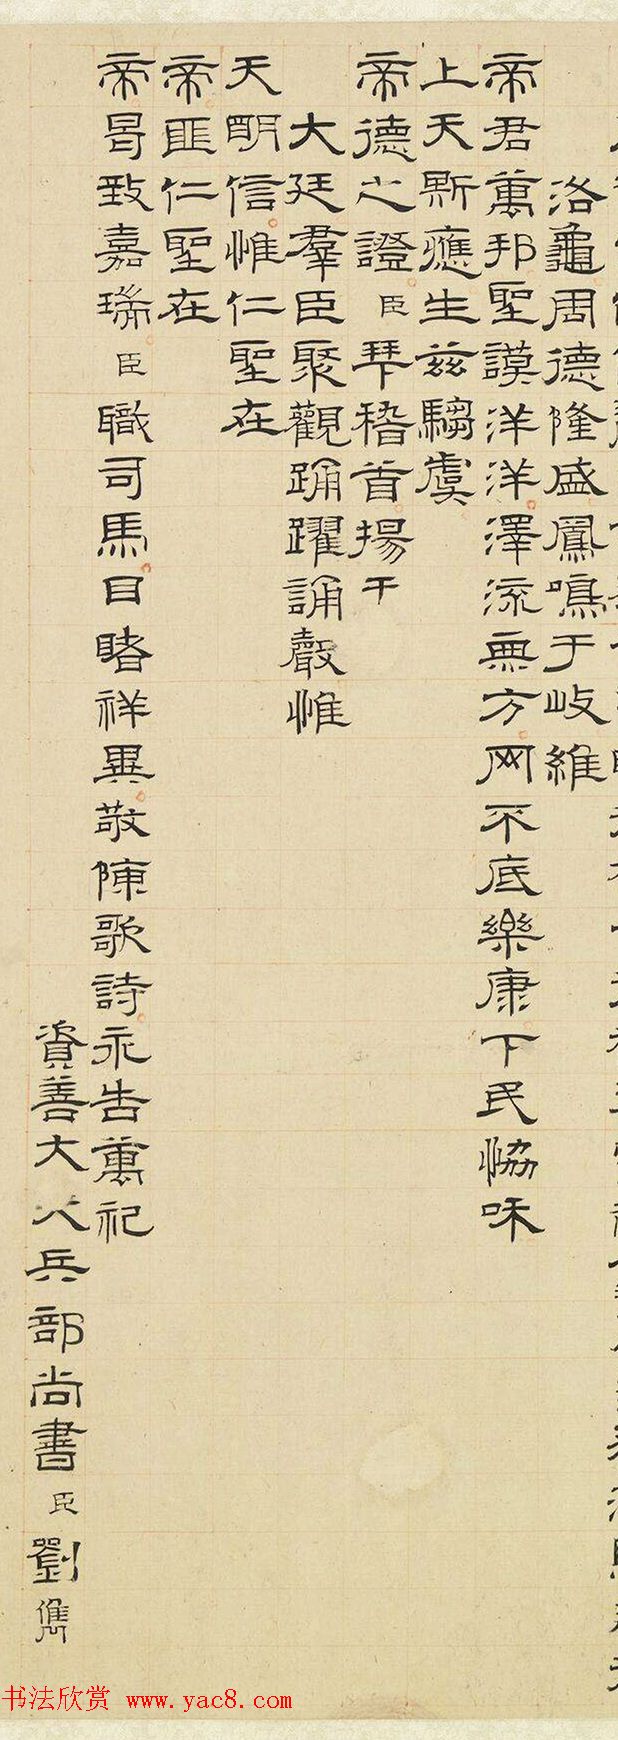 洛龜周德隆盛鳳鳴于岐維
帝君萬邦聖謨洋洋澤流無方网不底樂康下民恊咊
上天斯應生兹騶虞
帝德之證臣拜稽首揚于
大廷羣臣聚觀踊躍誦聲惟
天眀信惟仁聖在
帝匪仁聖在
帝曷致嘉瑞臣職司馬目睹祥異敬陳歌詩永告萬祀
資善大夫兵部尚書臣劉儁
书法欣赏 www.yac8.com